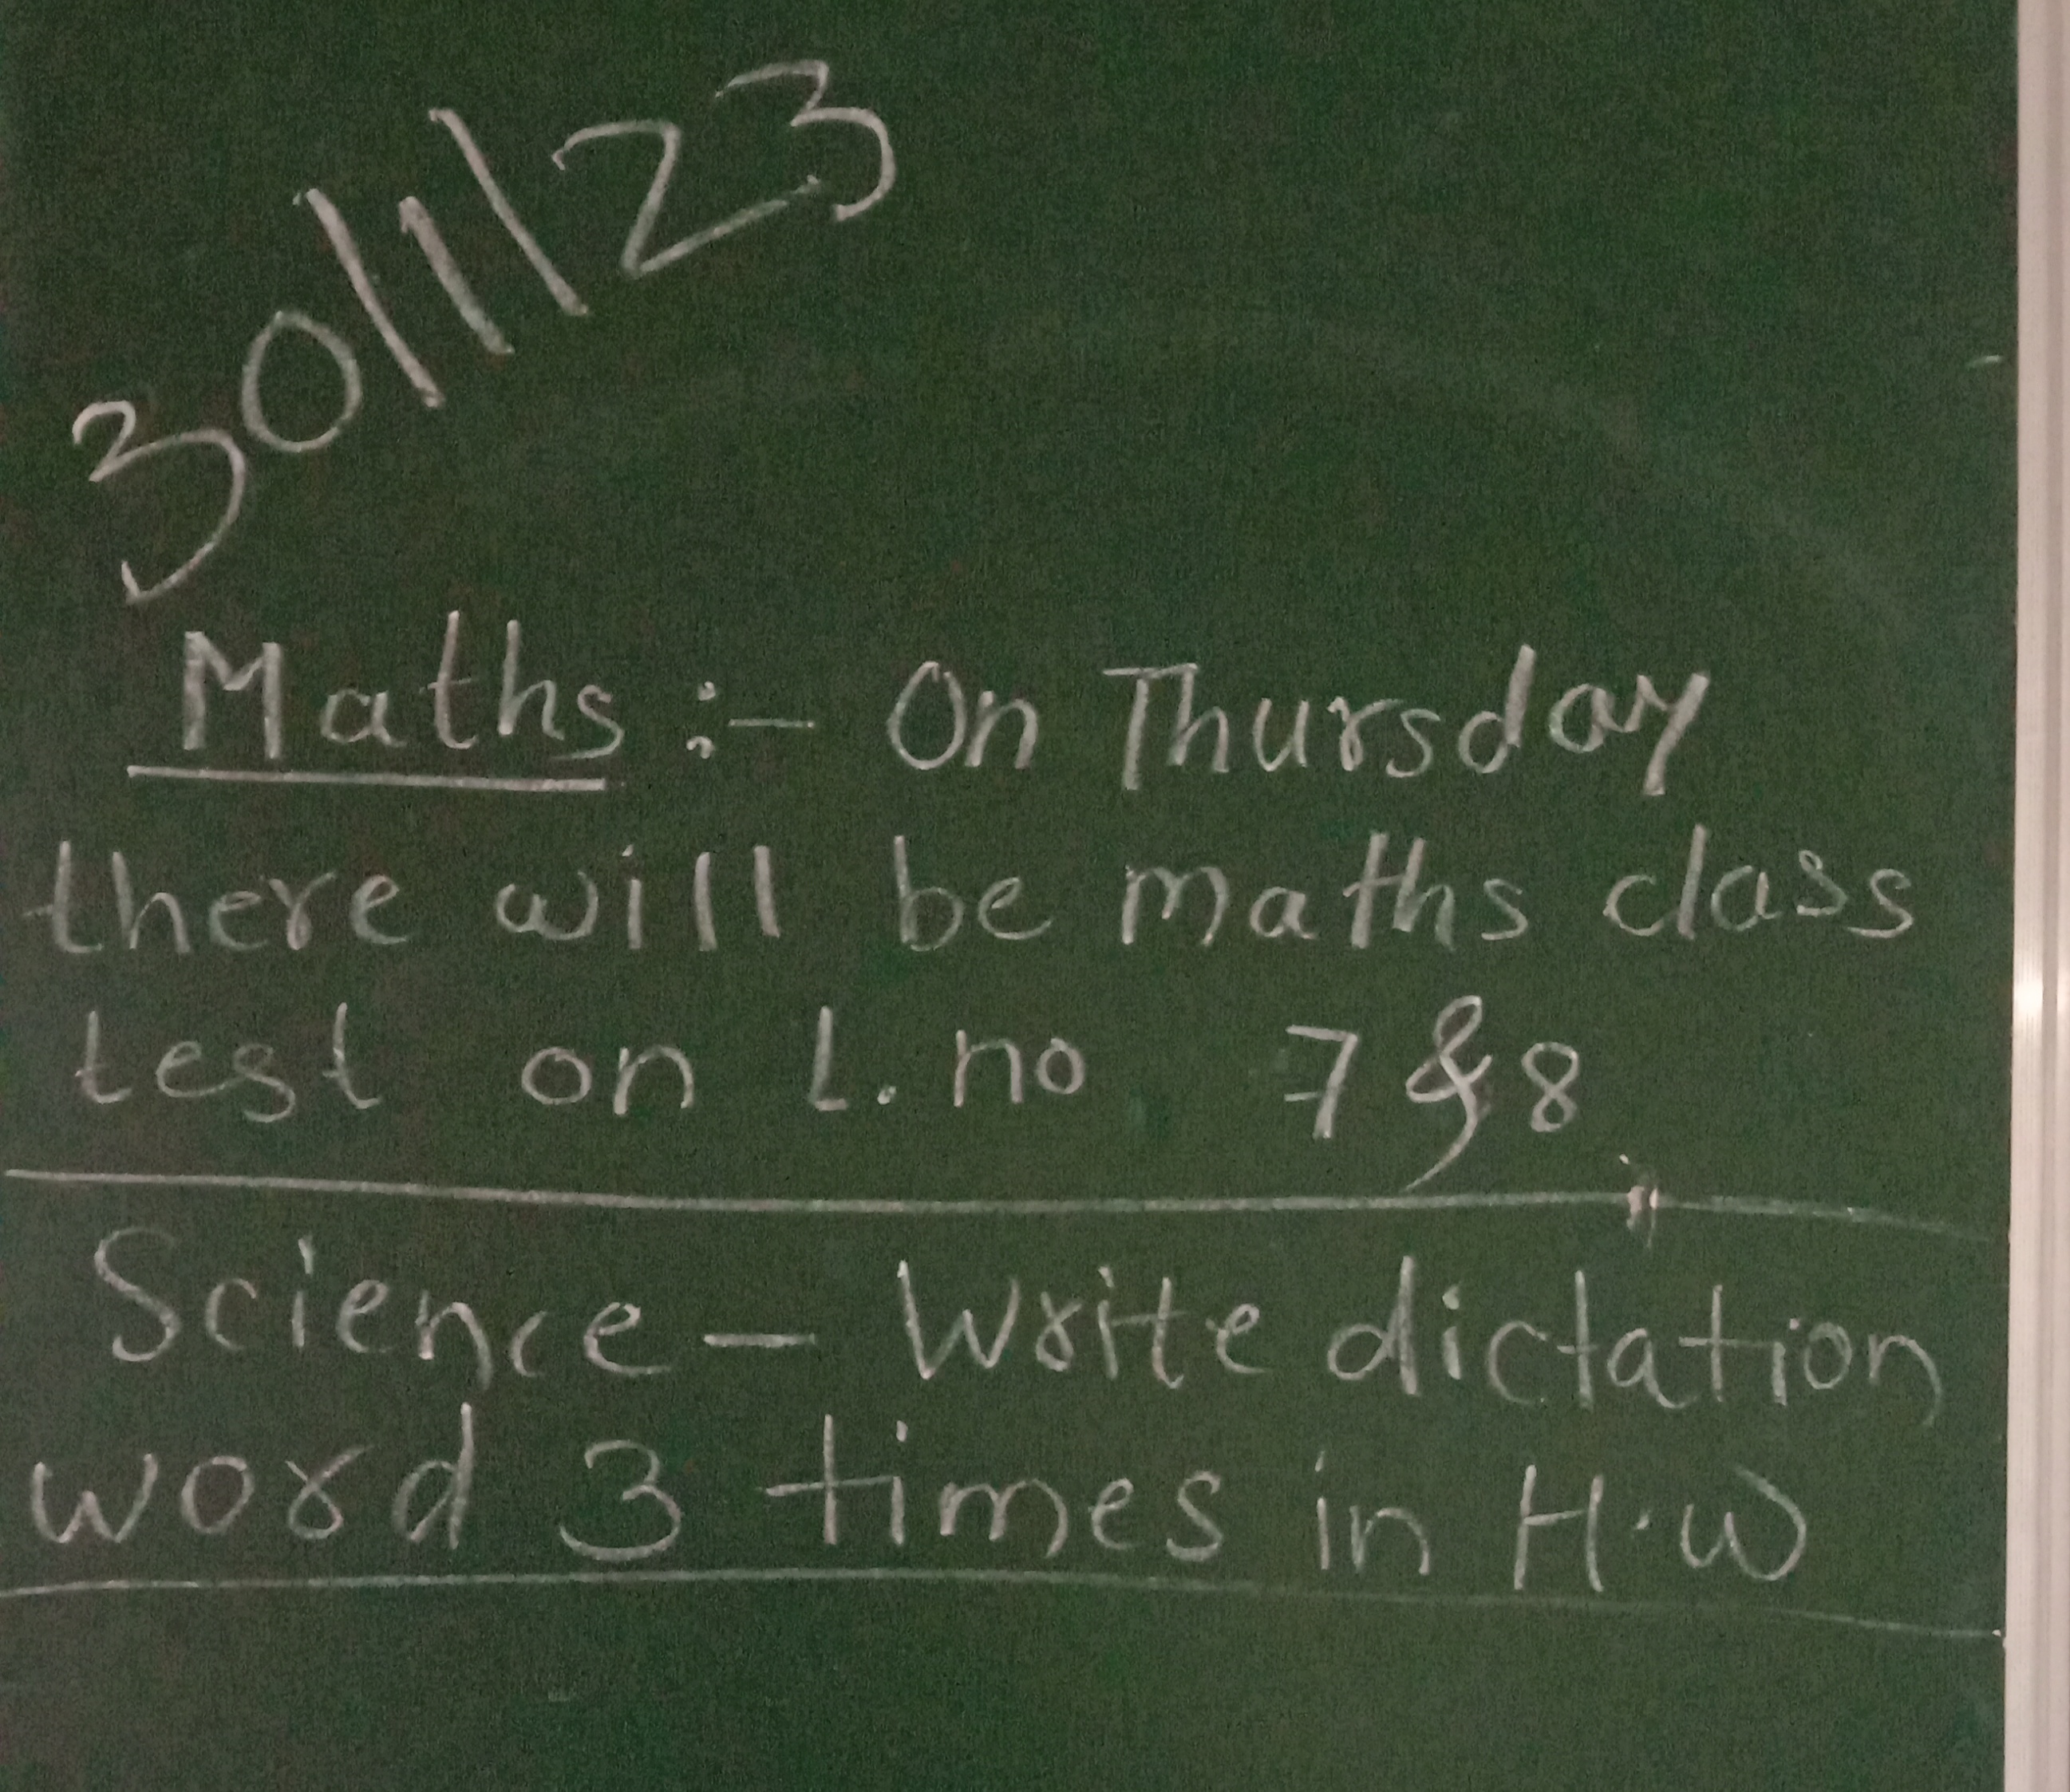 30/1/23
Maths :- On Thursday
there will be maths class
test on L. no 7 & 8
Science - Write dictation
word 3 times in H.W